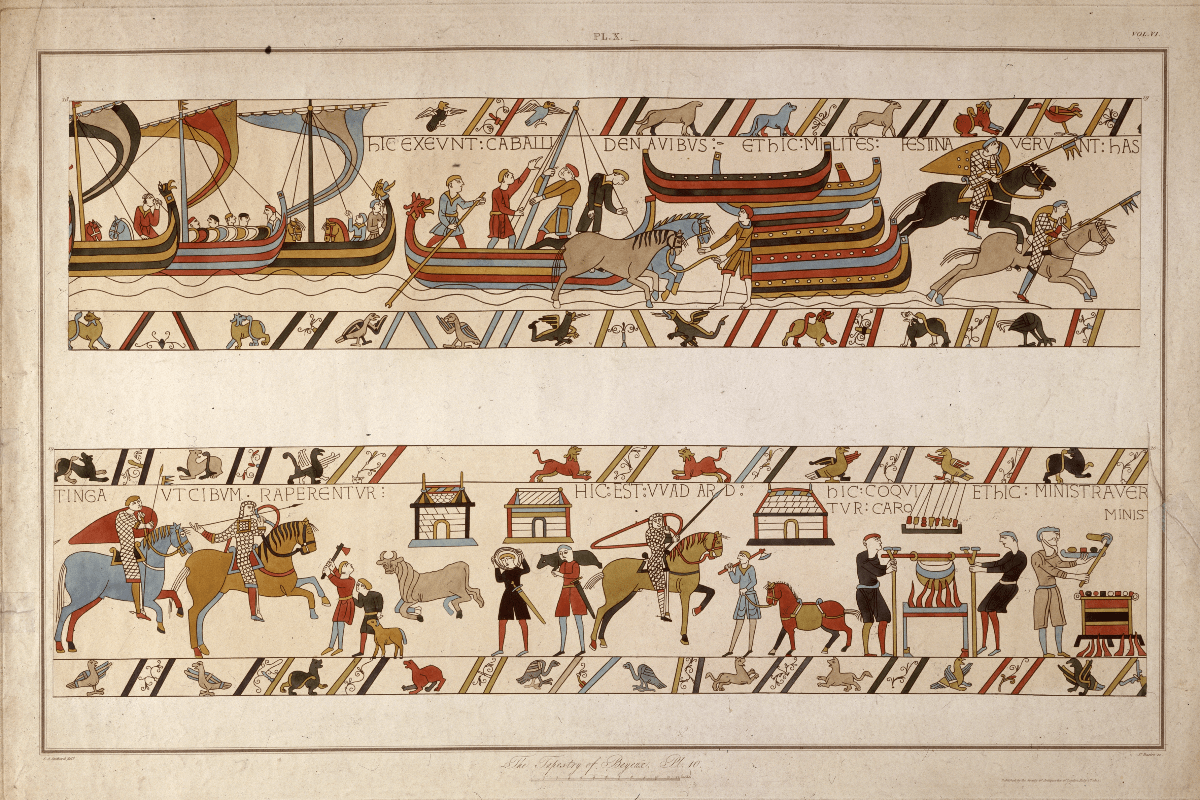 PL.X.
VOL.VI.
hIC EXEVNT: CABALLI DENAVIBVS:- EThIC: MILITES: FESTINAVERVNT: hAS
TINGA VTCIBVM. RAPERENTVR: HIC: EST: VVADARD: hIC: COQVI ETHIC: MINISTRAVER
TVR: CARO MINIS
The Tapestry of Bayeux. Pl. 10.